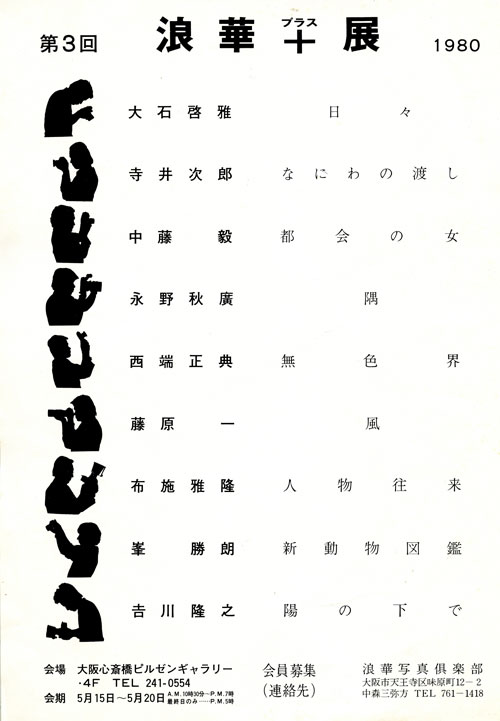 第3回 浪華＋プラス展 1980
大石啓雅 日々
寺井次郎 なにわの渡し
中藤毅 都会の女
永野秋廣 隅
西端正典 無色界
藤原一 風
布施雅隆 人物往来
峯勝朗 新動物図鑑
𠮷川隆之 陽の下で
会場 大阪心斎橋ビルゼンギャラリー
・4F TEL 241-0554
会期 5月15日〜5月20日 A.M.10時30分—P.M.7時
最終日のみ……P.M.5時
会員募集
(連絡先)
浪華写真倶楽部
大阪市天王寺区味原町12－2
中森三弥方 TEL 761-1418